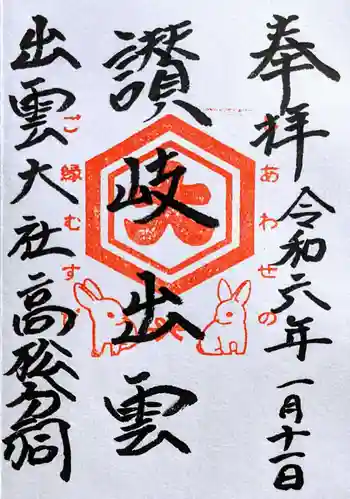 奉拝
令和六年
一月十一日
しあわせの
讃岐出雲
大
ご縁むすび
出雲大社高松分祠